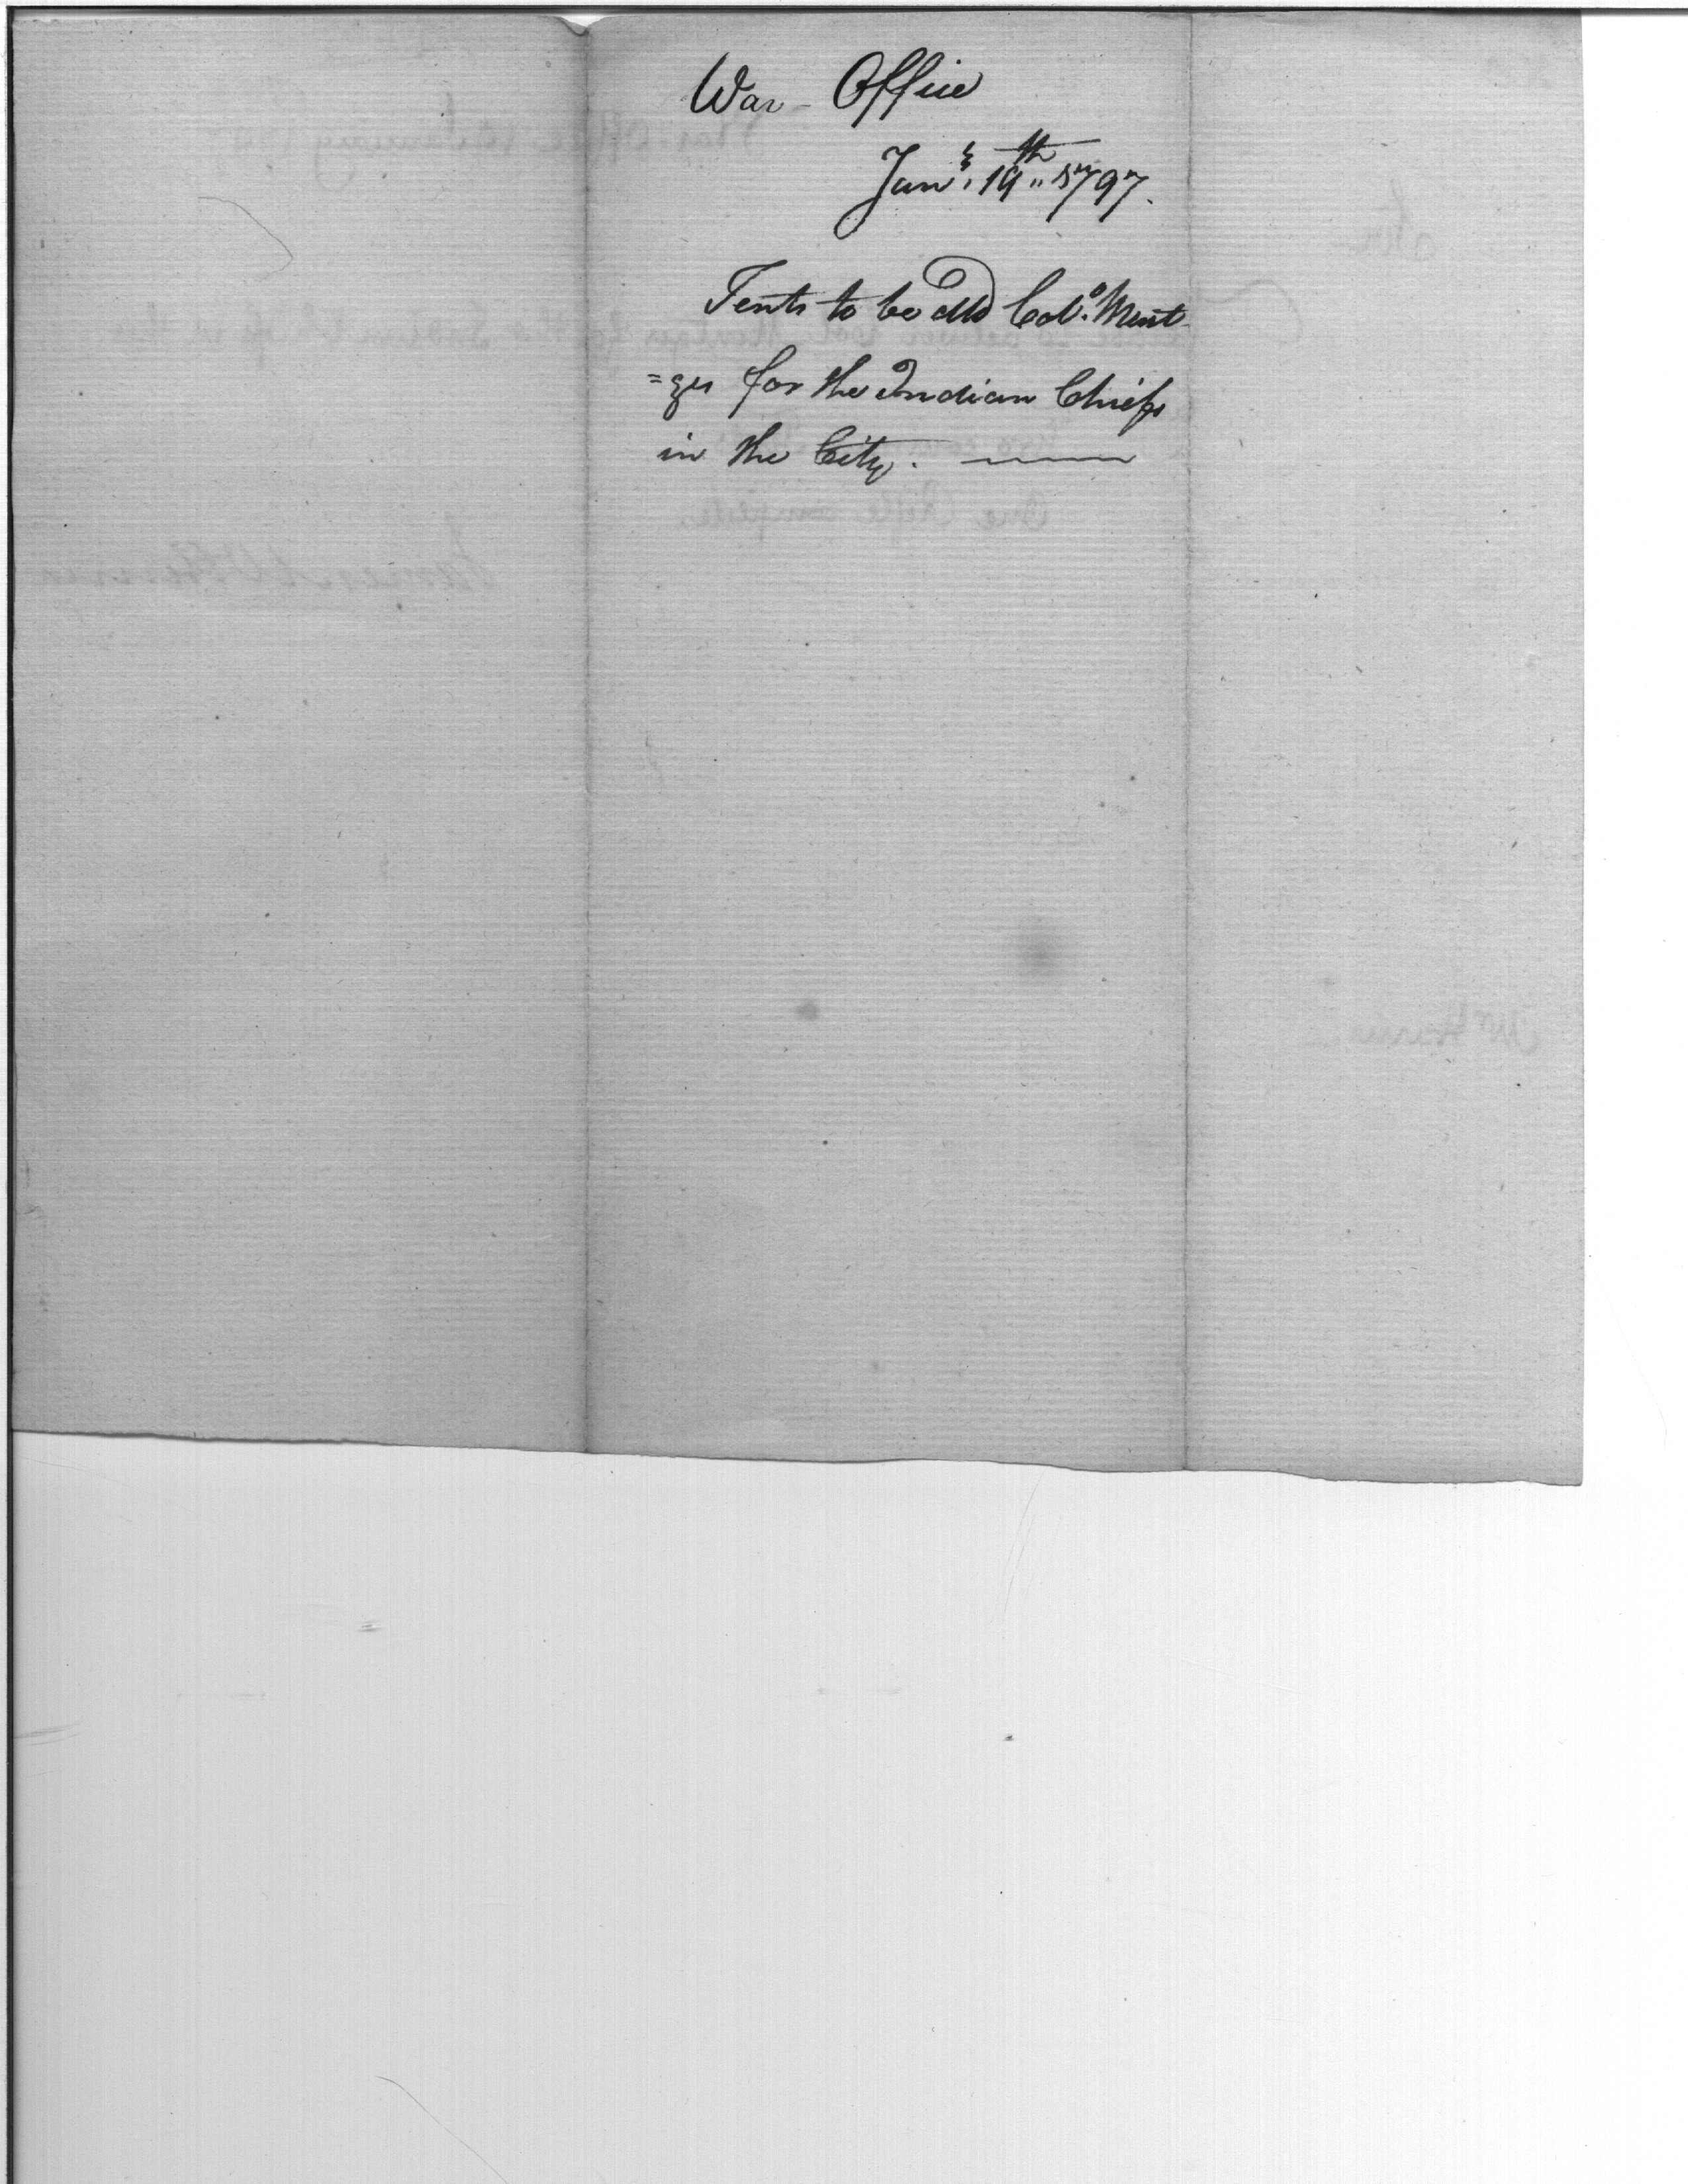 War - Office
Jany. 19th 1797.
Tents to be dld Colo. Ment
=ges for the Indian Chiefs
in the City.